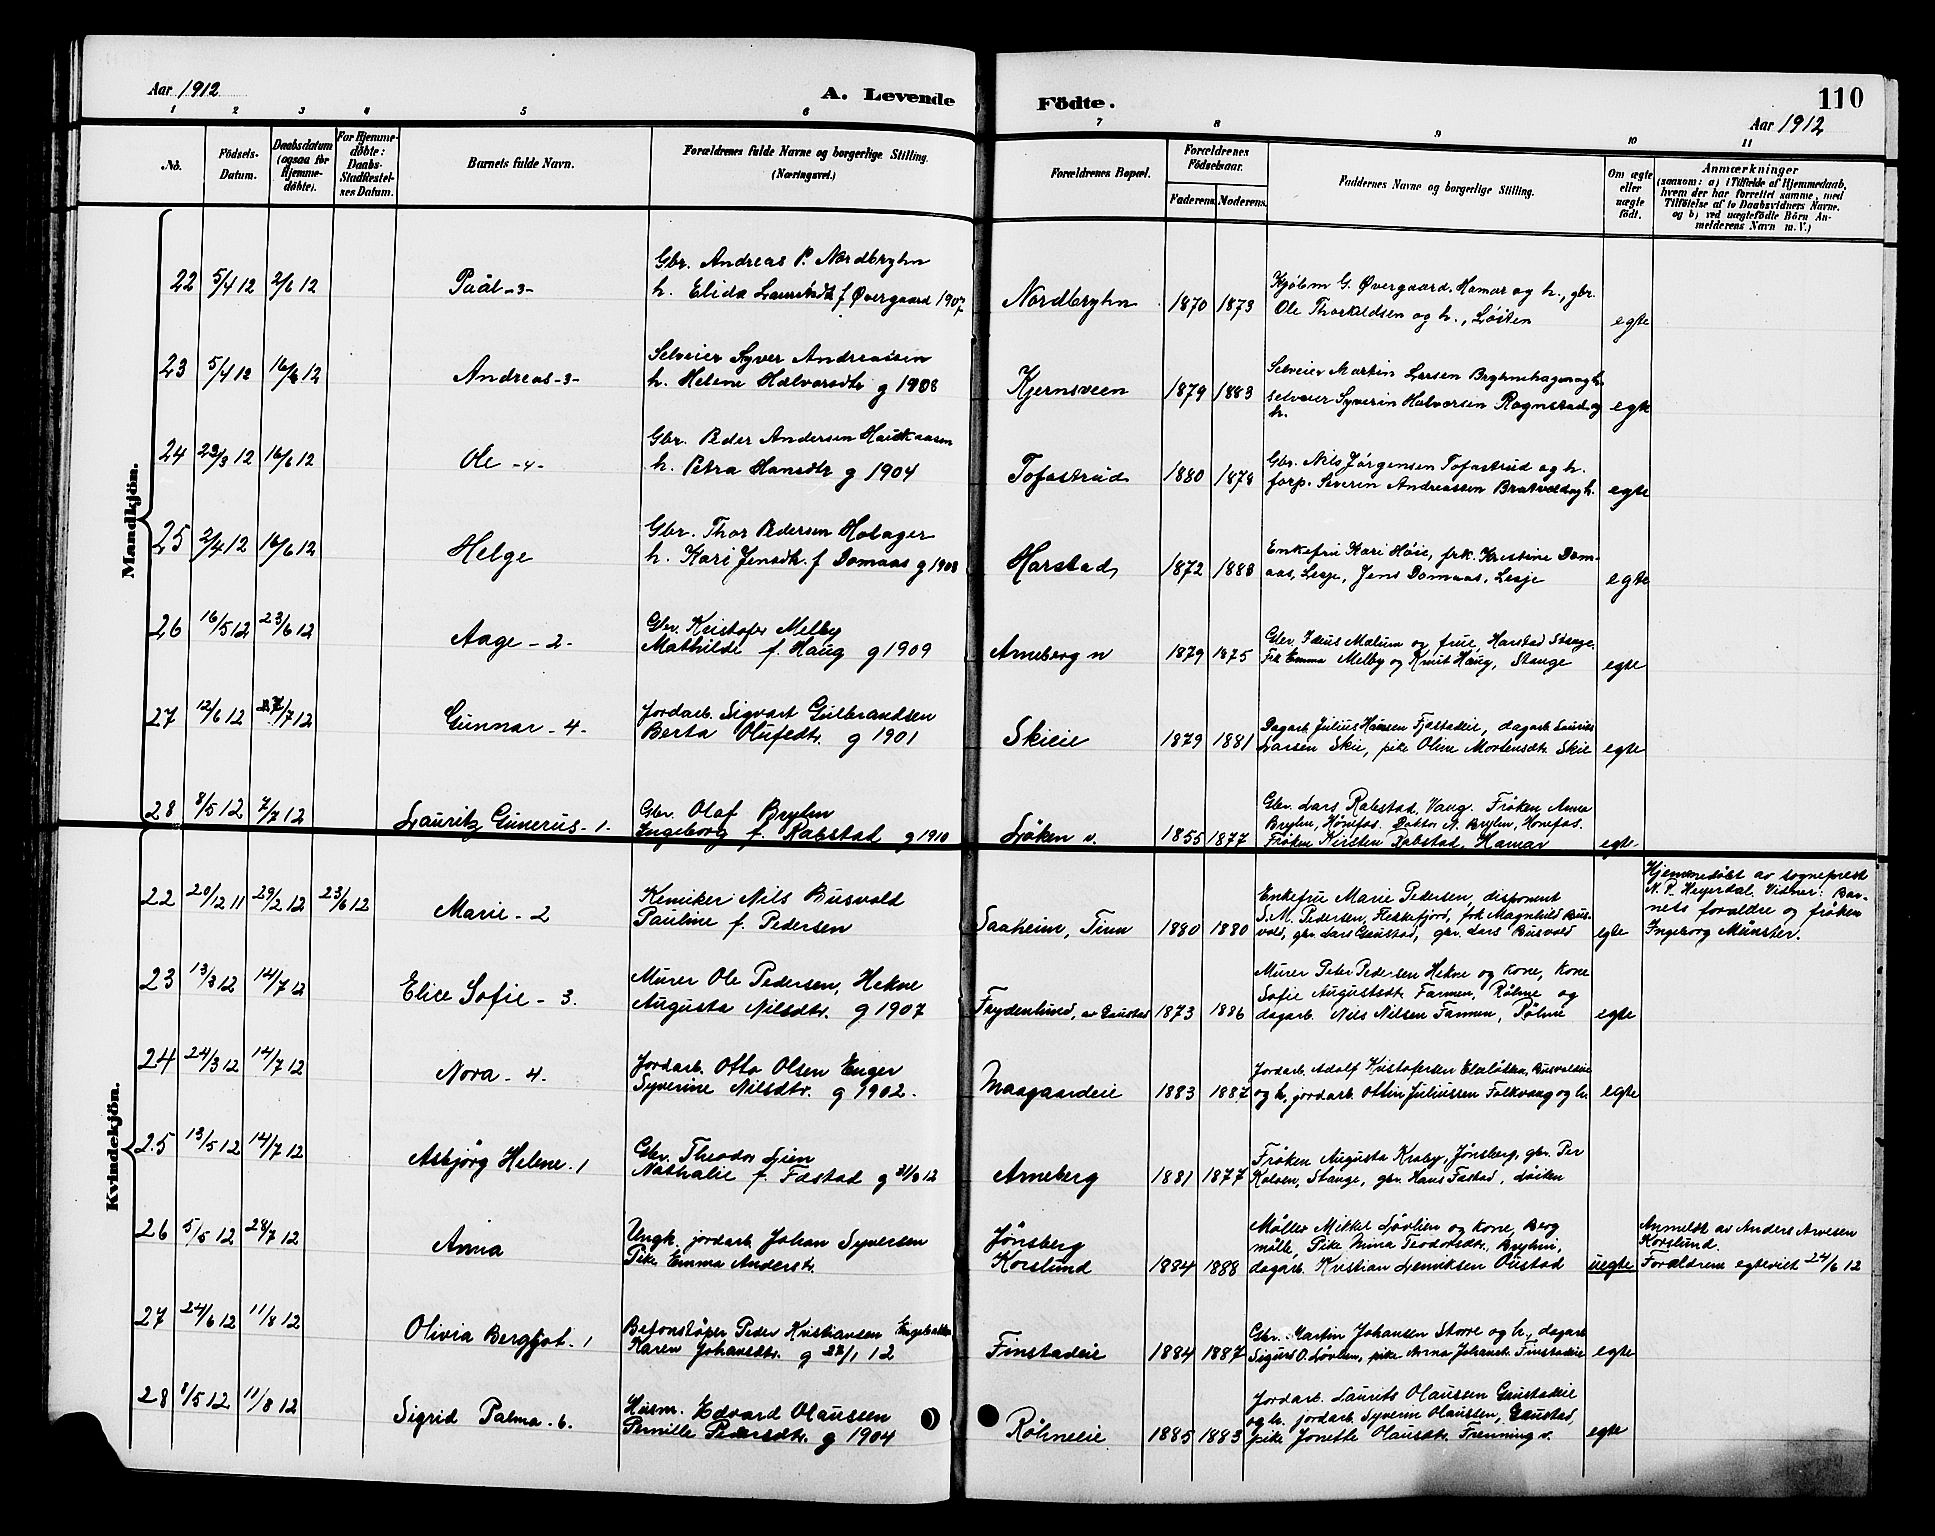 Aar 1912
A. Levende
Födte.
110
Aar 1912
1 2 3 4 5 6 7 8 9 10 11
No.
Födsels-
Datum.
Daabsdatum
(ogsaa for
Hjemme-
döbte).
For Hjemme-
døbte:
Daabs-
Stadfæstel-
ses Datum.
Barnets fulde Navn.
Forældrenes fulde Navne og borgerlige Stilling.
(Næringsvei.)
Forældrenes Bopæl.
Forældrenes
Födselsaar.
Faderens. Moderens.
Faddernes Navne og borgerlige Stilling.
Om ægte
eller
uægte
födt.
Anmærkninger
(saasom: a) i Tilfælde af Hjemmedaab,
hvem der har forrettet samme, med
Tilföielse af to Daabsvidners Navne.
og b) ved uægtefödte Börn An-
melderens Navn m. V.)
Mandkjön.
22 5/4 12 2/6 12 Paal -3-
Gbr. Andreas P. Nordbryhn
h. Elida Lauritsdtr f. Övergaard 1907
Nordbryhn 1870 1873
Kjøbm G. Øvergaard, Hamar og h., gbr.
Ole Thorkildsen og h., Løiten
egte
23 5/4 12 16/6 12 Andreas -3-
Selveier Syver Andreassen
h. Helene Halvorsdtr g 1908
Kjernsveen 1879 1883
Selveier Martin Larsen Bryhnhagen og h.
selveier Syverin Halvorsen Rognstad og
h.
egte
24 23/3 12 16/6 12 Ole -4-
Gbr. Peder Andersen Haukaasen
h. Petra Hansdtr g 1904
Tofastrud 1880 1878
Gbr. Nils Jörgensen Tofastrud og h.
forp. Severin Andreassen Bratvold og h.
egte
25 2/4 12 16/6 12 Helge
Gbr. Thor Pedersen Hobager
h. Kari Jensdtr. f Domaas g 1908
Harstad 1872 1888
Enkefru Kari Høie, frk. Kristine Dom-
aas, Lesje, Jens Domaas, Lesje
egte
26 16/5 12 23/6 12 Aage - 2-
Gbr. Kristofer Melby
Mathilde f. Haug g 1909
Arneberg n 1879 1875
Gbr. Mælum og frue, Harstad Stange.
Frk Emma Melby og Knut Haug, Stange
egte
27 12/6 12 7/7 12 Gunnar - 4.
Jordarb. Sigvart Gulbrandsen
Berta Olufsdtr. g 1901
Skieie 1879 1881
Dagarb. Julius Hansen Fjæstadeie, dagarb. Laurits
Larsen Skie, pike Oline Mortensdtr. Skie
egte
28 8/5 12 7/7 12 Lauritz Gunerus - 1.
Gbr. Olaf Bryhn
Ingeborg f. Rabstad g 1910
Løken v. 1855 1877
Gbr. Lars Rabstad, Vang. Frøken Anna
Bryhn, Hønefos. Doktor N. Bryhn, Honefos.
Frøken Kirsten Rabstad, Hamar
egte
Kvindekjön.
22 20/12 11 29/2 12 23/6 12 Marie - 2
Kemiker Nils Busvold
Pauline f. Pedersen
Saaheim, Tinn 1880 1880
Enkefru Marie Pedersen, disponent
S.M. Pedersen, Hekkefjord, frk Magnhild Bus-
vold, gbr. Lars Gaustad, gbr. Lars Busvold
egte
Hjemmedøbt av sogneprest
N. P. Heyerdal. Vidner: Bar-
nets forældre og frøken
Ingeborg Münster.
23 13/3 12 14/7 12 Elice Sofie - 3.
Murer Ole Pedersen, Hekne
Augusta Nilsdtr. g 1907
Frydenlund, av Gaustad 1873 1886
Murer Peter Pedersen Hekne og kone, kone
Sofie Augustsdtr Farmen, Røhne og
dagarb. Nils Nilsen Farmen, Røhne
egte
24 24/3 12 14/7 12 Nora - 4.
Jordarb. Otto Olsen Enger
Syverine Nilsdtr. g 1902.
Maagaardeie 1883 1887
Jordarb. Adolf Kristofersen Elvløkken, Busvoldeie
og h, jordarb. Ottin Juliussen Folkvang og h.
egte
25 13/5 12 14/7 12 Asbjørg Helene - 1
Gbr. Theodor Lien
Nathalie f. Fæstad g 21/6 12
Arneberg 1881 1877
Frøken Augusta Kroby, Jønsberg, gbr. Per
Kolsen, Stange, gbr. Hans Fæstad, Løiten
26 5/5 12 28/7 12 Anna
Ungk. jordarb. Johan Syversen
Pike Emma Andersdtr.
Jønsberg
Korslund 1884 1888
Møller Mikkel Løvlien og kone, Berg
mølle, Pike Nina Teodorsdtr., Bryhni,
dagarb. Kristian Henriksen Oustad
uegte
Anmeldt av Anders Arvesen
Korslund.
Forældrene egteviet 24/6 12
27 24/6 12 11/8 12 Olivia Bergljot. 1
Betonstøper Peder Kristiansen Engebakken
Karen Johansdtr. g 22/1 12
Finstadeie 1884 1887
Gbr. Martin Johansen Storre og h, dagarb
Sigurd O. Løvlien, pike Anna Johansdtr. Finstadeie
egte
28 8/5 12 11/8 12 Sigrid Palma - 6.
Husm. Edvard Olaussen
Pernille Pedersdtr. g 1904
Røhneeie 1885 1883
Jordarb. Laurits Olaussen Gaustadeie
og h. jordarb. Syverin Olaussen, Gaustad,
pike Jonette Olausdtr. Frenning v.
egte